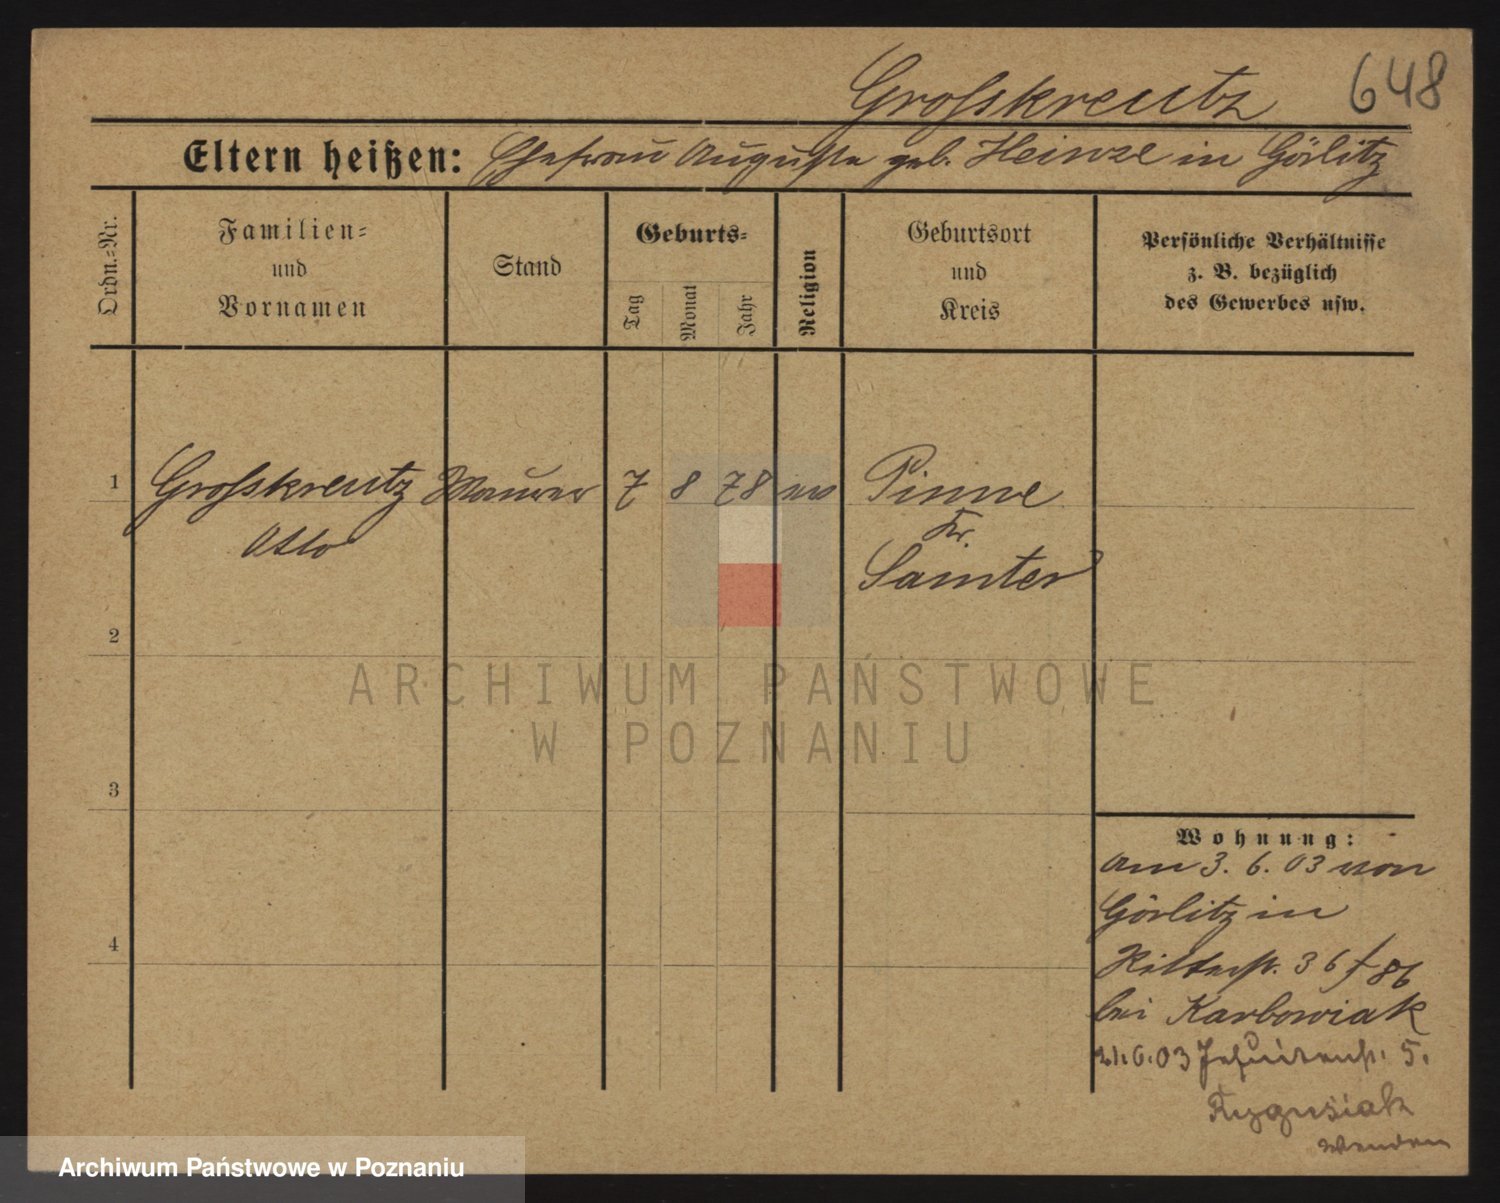 648
Grosskreutz
Eltern heißen: Ehefrau Auguste geb. Heinze in Görlitz
Ordn.-Nr.
Familien- und Vornamen
Stand
Geburts-
Tag
Monat
Jahr
Religion
Geburtsort und Kreis
Persönliche Verhältnisse
z. B. bezüglich
des Gewerbes usw.
1 Grosskreutz Maurer 7 8 78 ev Pinne
Otto
Kr.
Samter
2
3
4
Wohnung:
am 3. 6. 03 von
Görlitz in
Ritterstr. 36 / 86
bei Karbowiak
21.6.03 Jesuitenstr. 5.
wenden
ARCHIWUM PAŃSTWOWE
W POZNANIU
Archiwum Państwowe w Poznaniu